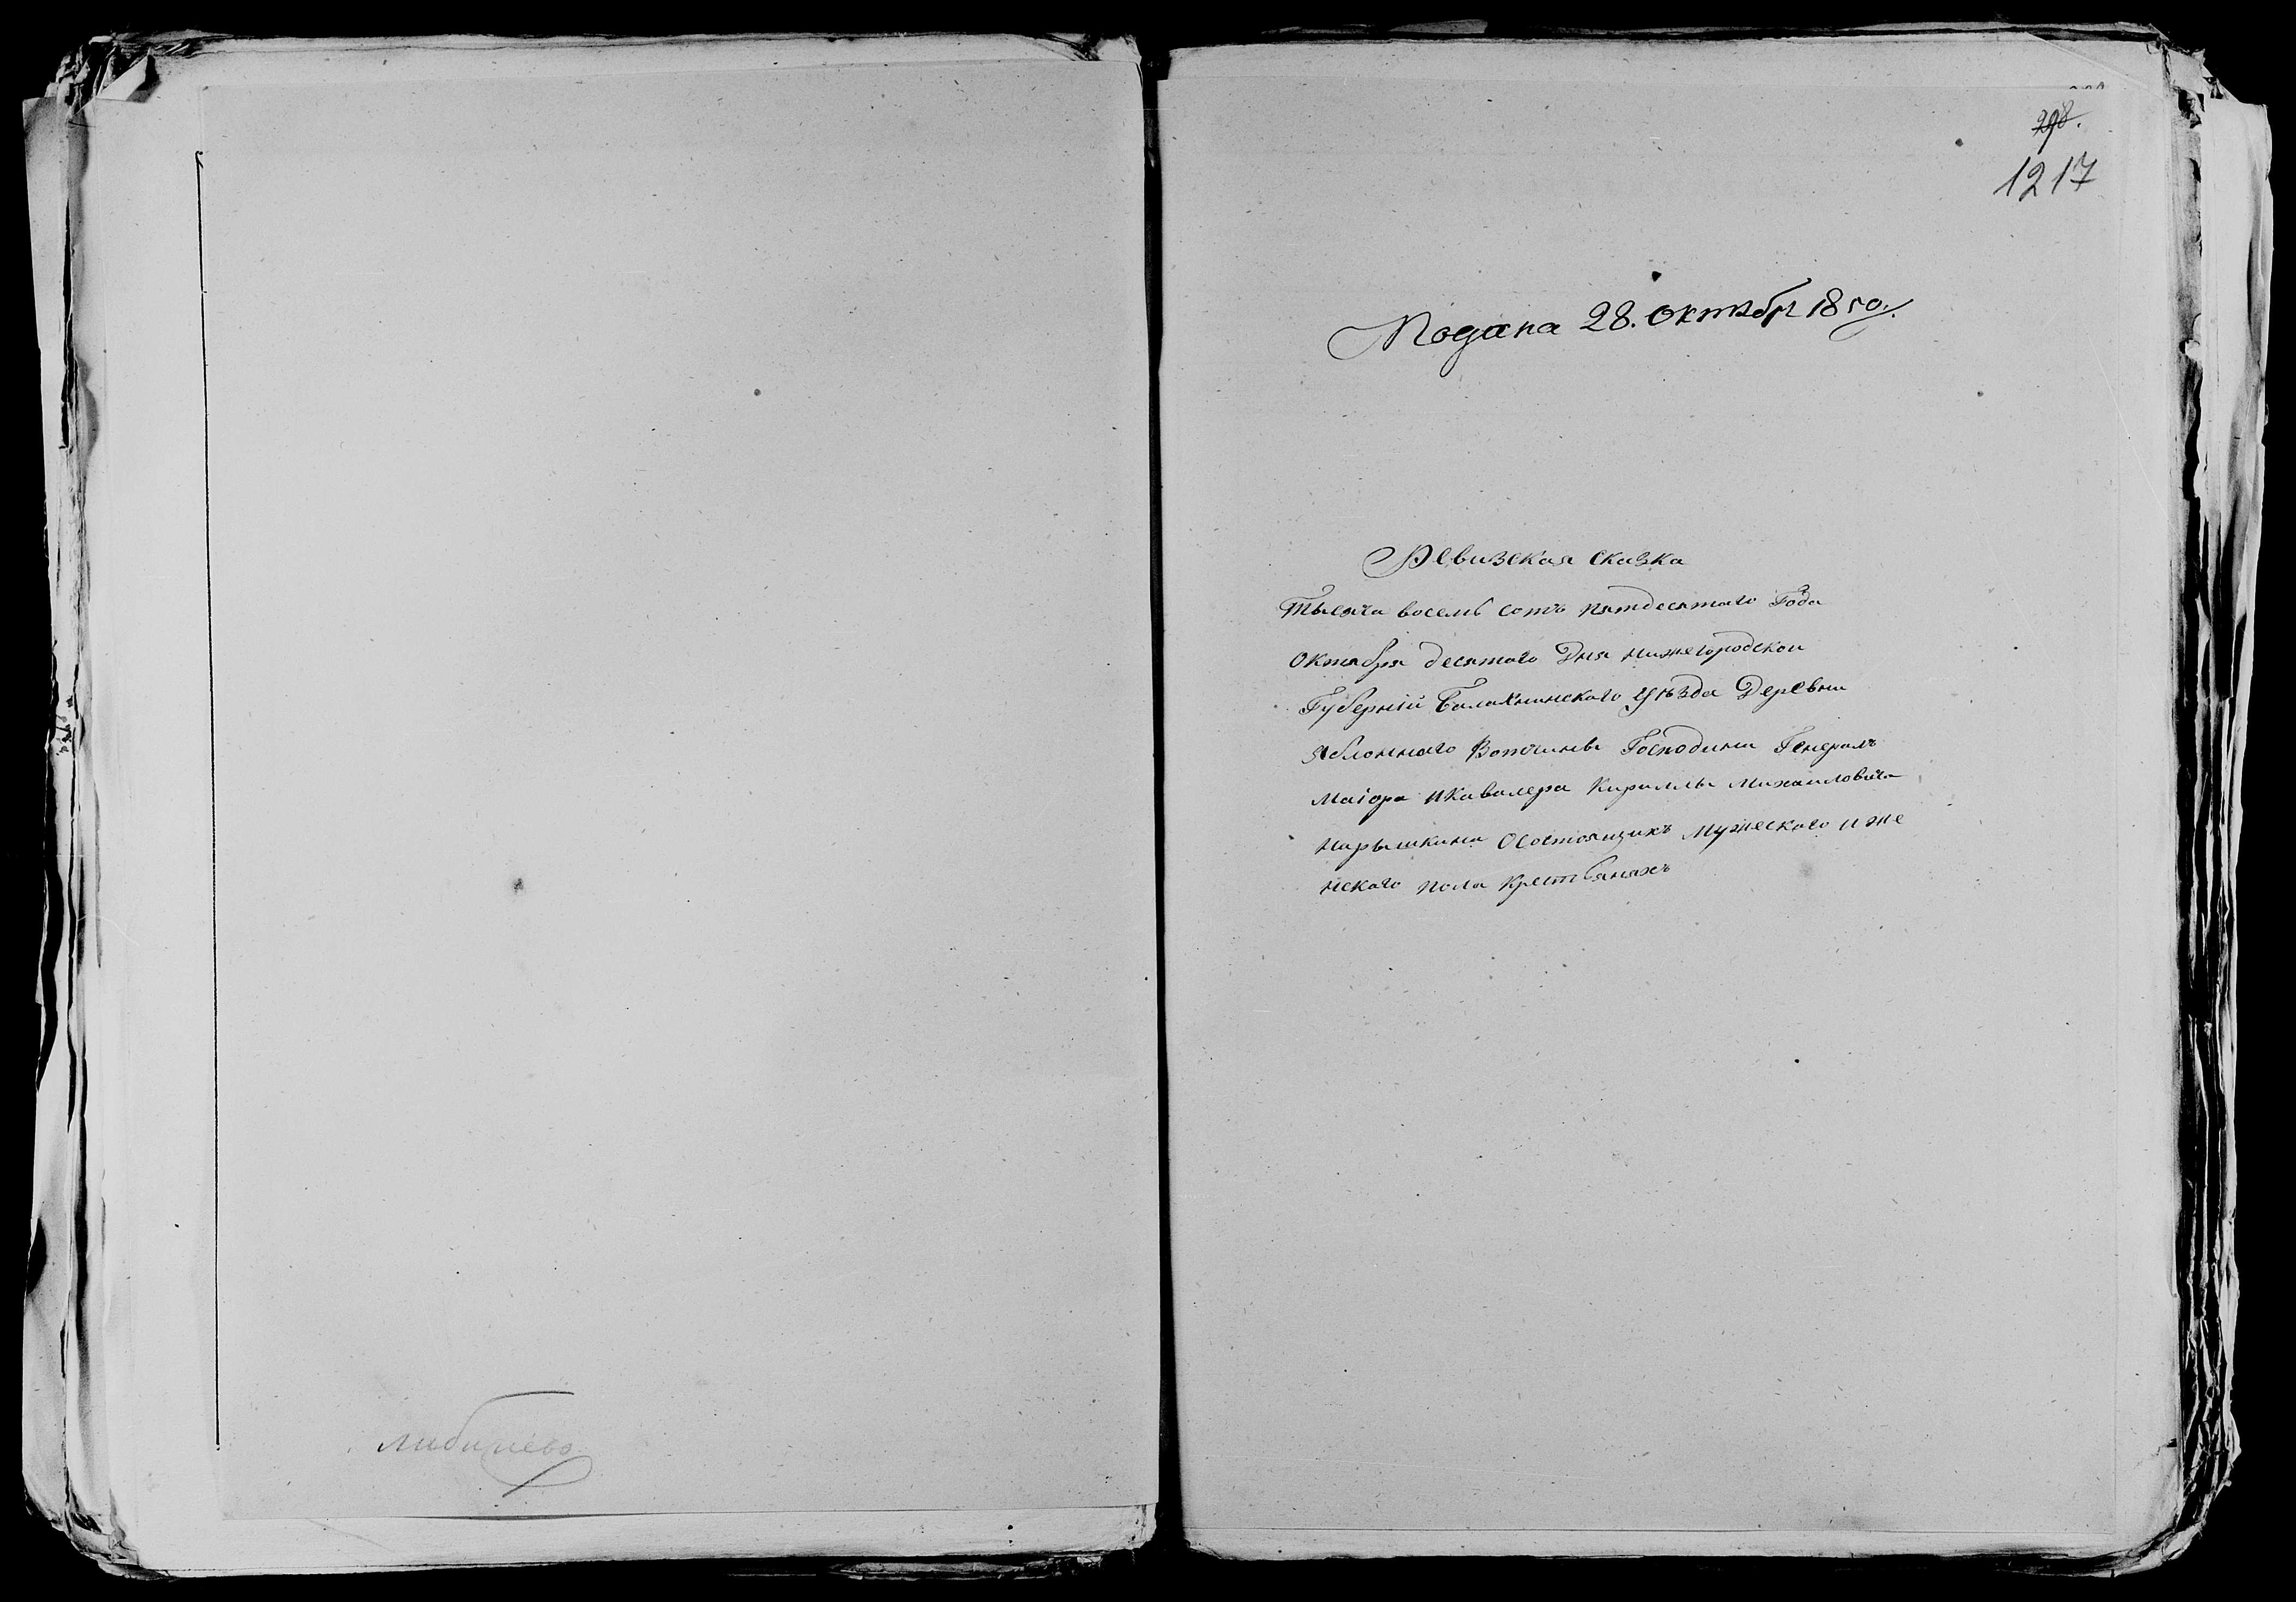 298.
1217
Подана 28. октября 1850.
Ревизская сказка
Тысяча восемь сотъ пятдесятаго Года
октября десятаго Дня нижегородской
Губерніи Балахнинскаго уѣзда Деревни
Яблоннаго Вотчины Господина Генералъ
Маіора и Кавалера Кириллы Михаиловича
нарышкина О состоящихъ мужескаго и же
нскаго пола крестьянахъ